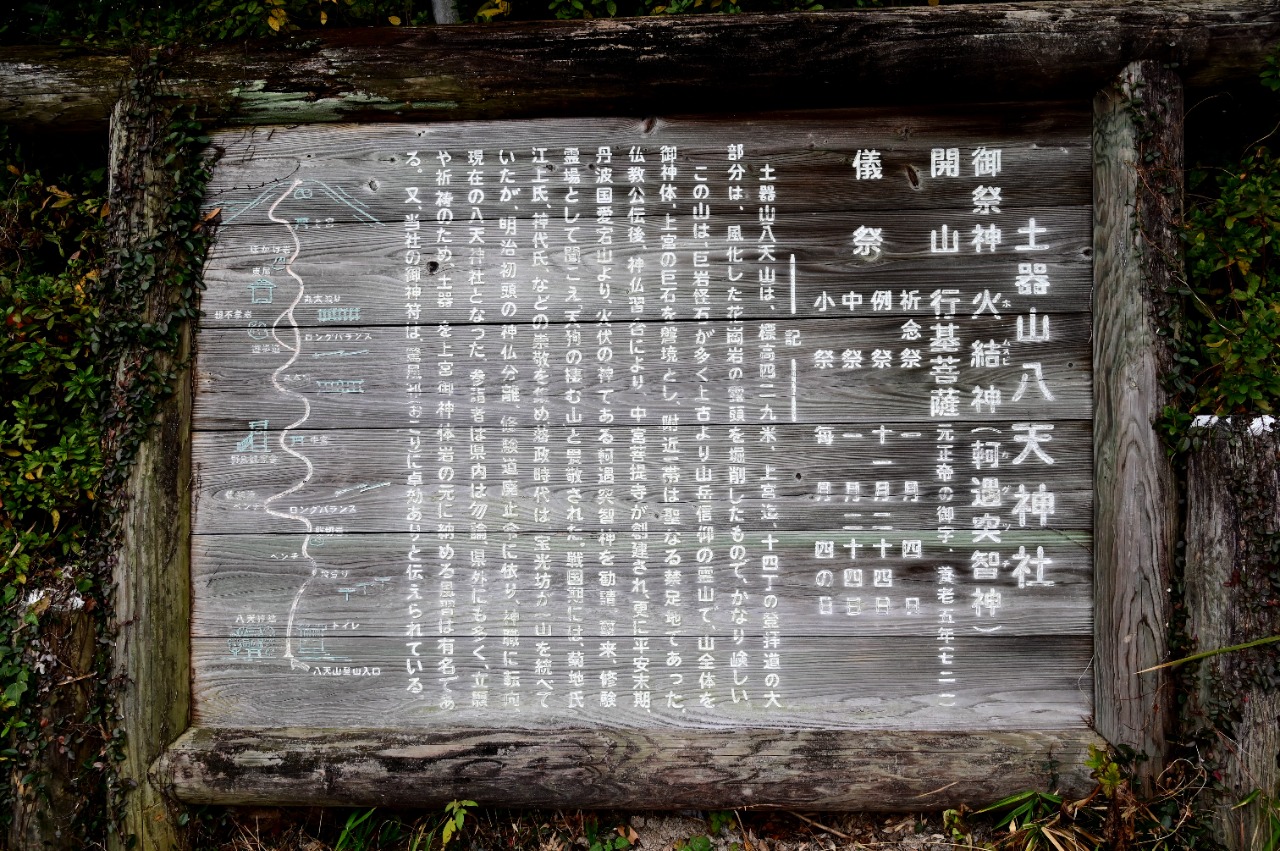 土器山八天神社
御祭神 火結神(軻遇突智神)
ホ ムスビ カグツチ
開山 行基菩薩 元正帝の御宇、養老五年(七二一)
儀祭
祈念祭 一月四日
例祭 十一月二十四日
中祭 一月二十四日
小祭 毎月四の日
記
土器山八天山は、標高四二九米、上宮迄、十四丁の登拝道の大
部分は、風化した花崗岩の露頭を堀削したもので、かなり嶮しい
この山は、巨岩怪石が多く上古より山岳信仰の霊山で、山全体を
御神体、上宮の巨石を磐境とし、附近一帯は聖なる禁足地であった。
仏教公伝後、神仏習合により、中宮菩提寺が創建され、更に平安末期、
丹波国愛宕山より、火伏の神である軻遇突智神を勧請、爾来、修験
霊場として聞こえ、天狗の棲む山と畏敬された。戦国期には、菊地氏
江上氏、神代氏、などの崇敬を集め、藩政時代は、宝光坊が一山を統べて
いたが、明治初頭の神仏分離、修験道廃止令に依り、神職に転向、
現在の八天神社となった。参詣者は県内は勿論、県外にも多く、立願
や祈祷のため、土器を上宮御神体岩の元に納める風習は有名であ
る。又、当社の御神符は、(おこり)に卓効ありと伝えられている。
上宮
ほかけ岩
夜泊
丸太渡り
ロングバランス
中宮
ベンチ
ロングバランス
ベンチ
八天神社
トイレ
八天山登山入口